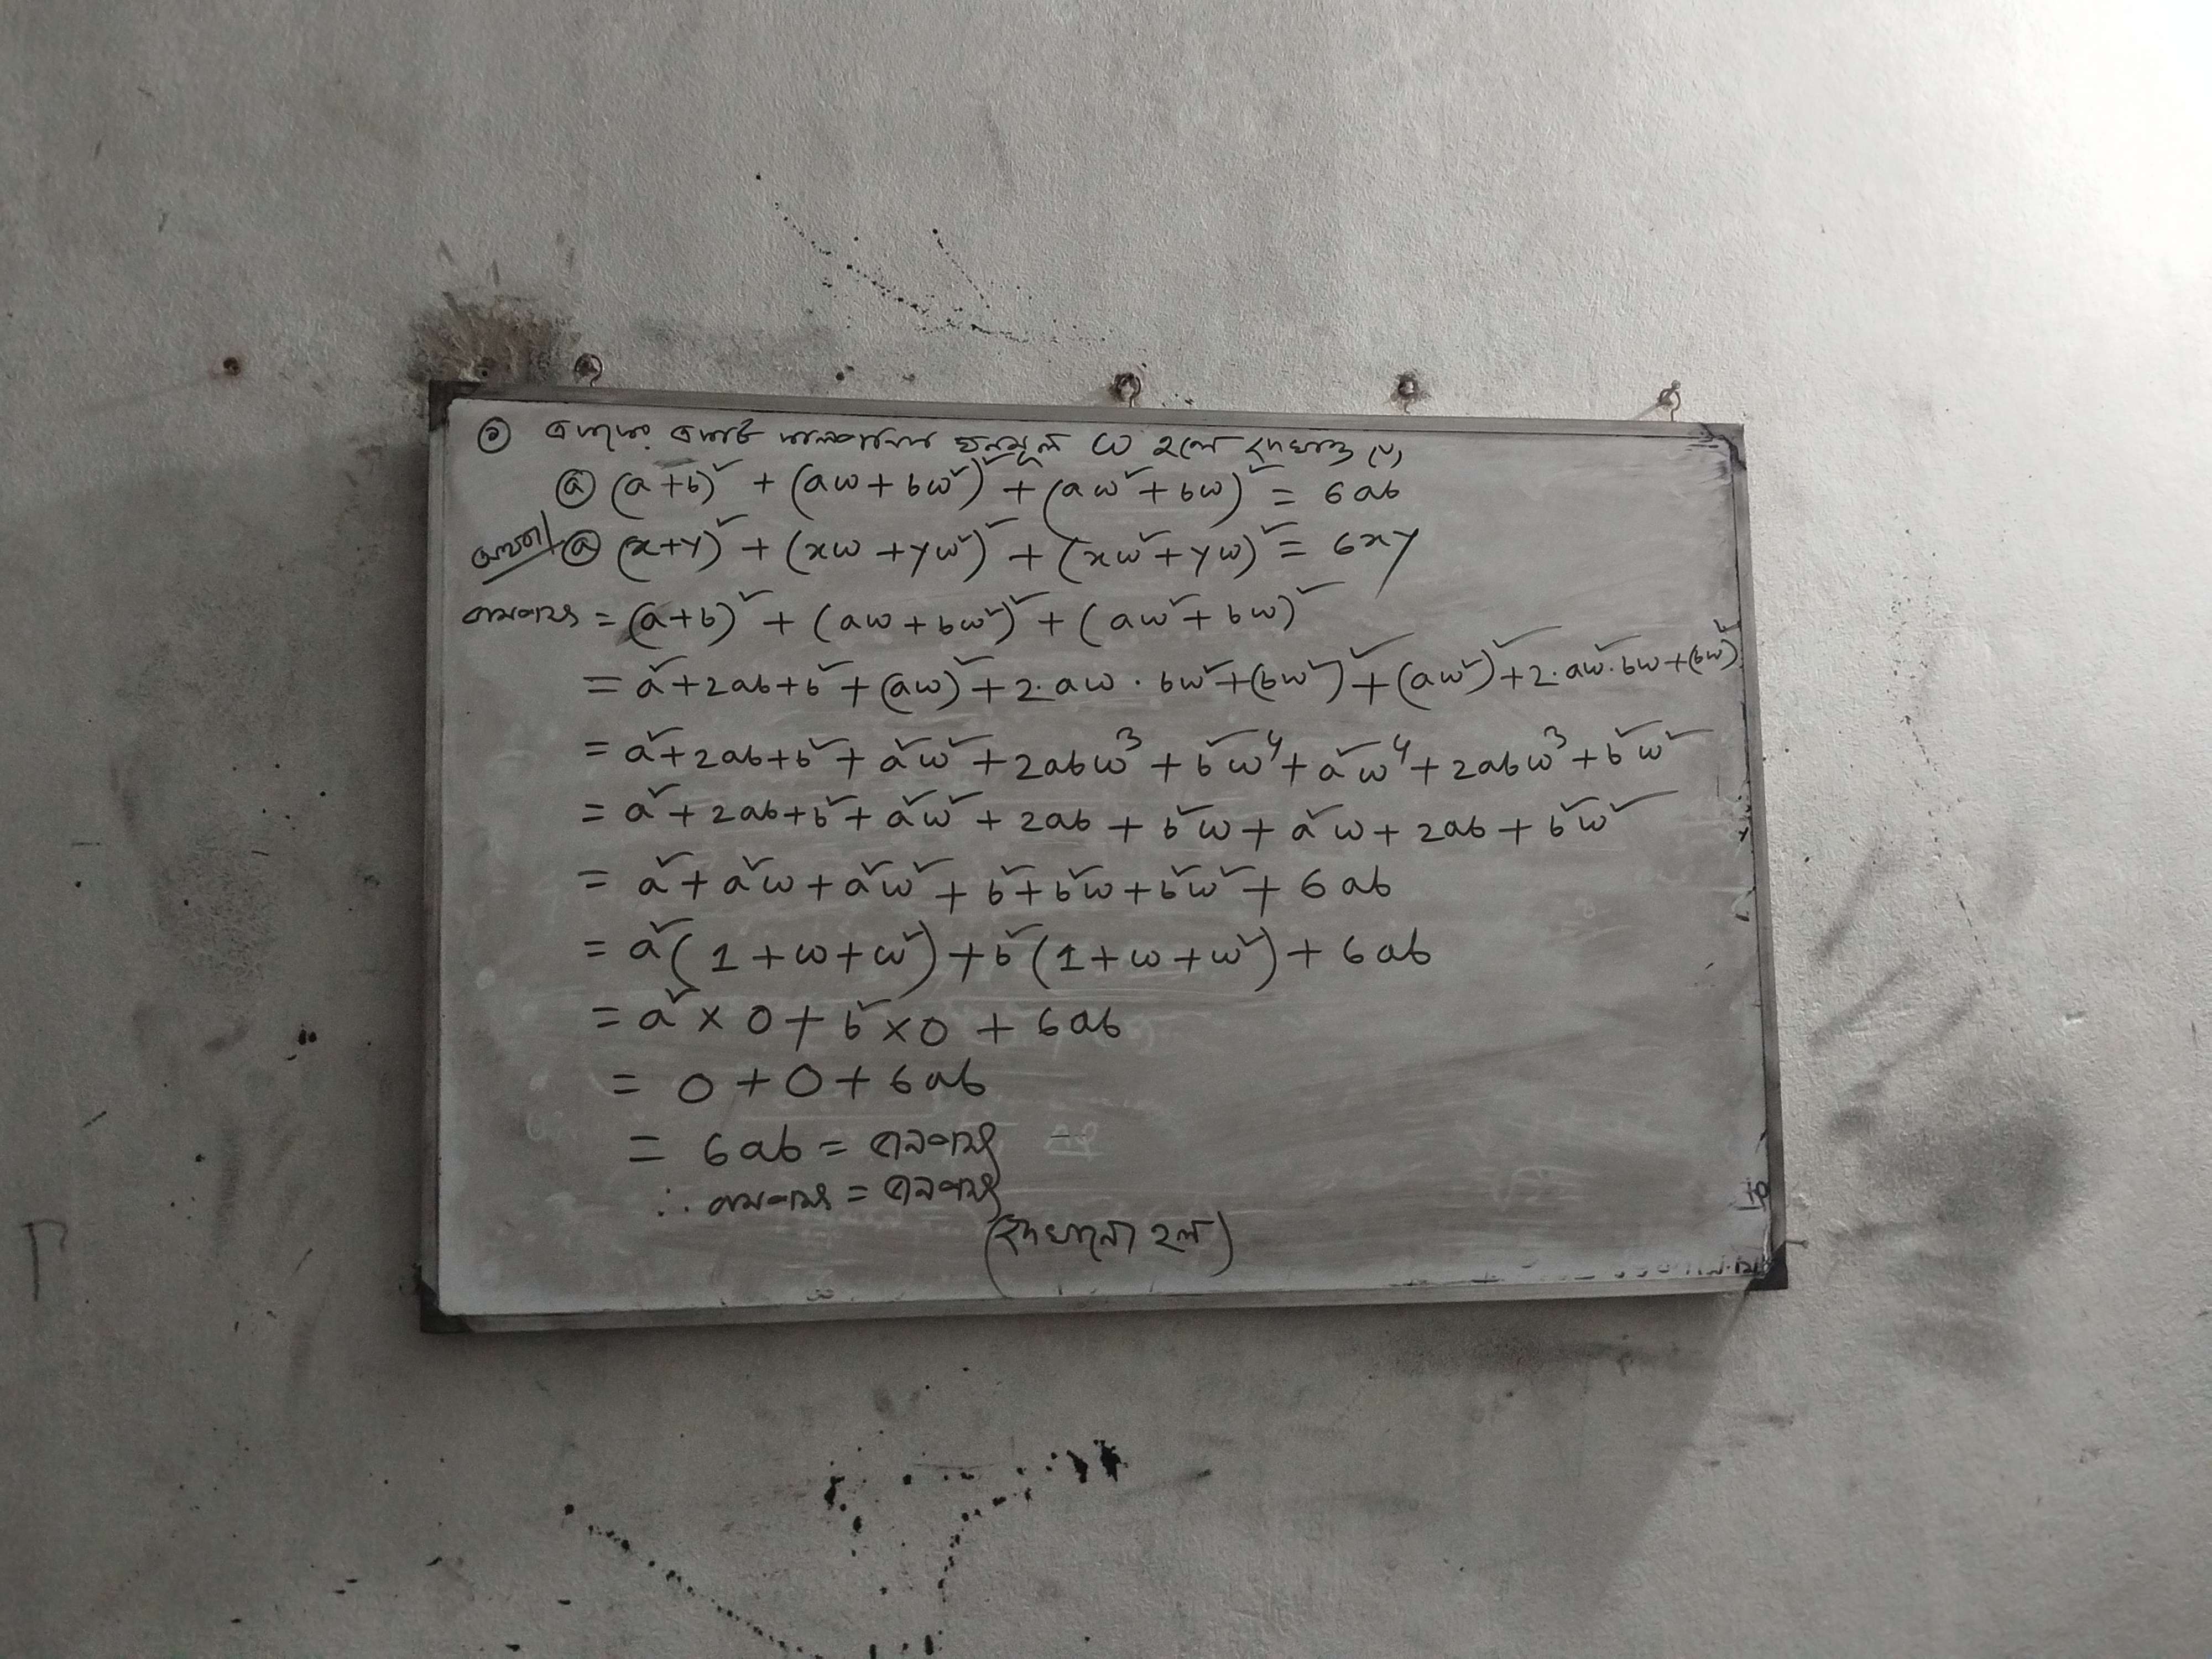 ① এককের একটি কাল্পনিক ঘনমূল ω হলে দেখাও যে,
ⓐ (a+b)² + (aω+bω²)² + (aω²+bω)² = 6ab
অথবা/ ⓐ (x+y)² + (xω+yω²)² + (xω²+yω)² = 6xy
বামপক্ষ = (a+b)² + (aω+bω²)² + (aω²+bω)²
= a²+2ab+b²+(aω)²+2.aω.bω²+(bω²)²+(aω²)²+2.aω².bω+(bω)²
= a²+2ab+b²+a²ω²+2abω³+b²ω⁴+a²ω⁴+2abω³+b²ω²
= a²+2ab+b²+a²ω²+2ab+b²ω+a²ω+2ab+b²ω²
= a²+a²ω+a²ω²+b²+b²ω+b²ω²+6ab
= a²(1+ω+ω²)+b²(1+ω+ω²)+6ab
= a²×0+b²×0+6ab
= 0+0+6ab
= 6ab = ডানপক্ষ
∴ বামপক্ষ = ডানপক্ষ
(দেখানো হল)